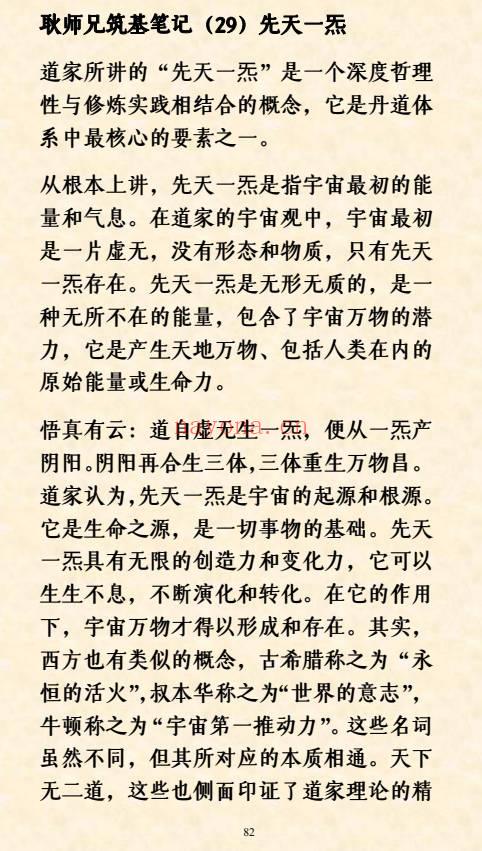 耿师兄筑基笔记（29）先天一炁
道家所讲的“先天一炁”是一个深度哲理
性与修炼实践相结合的概念，它是丹道体
系中最核心的要素之一。
从根本上讲，先天一炁是指宇宙最初的能
量和气息。在道家的宇宙观中，宇宙最初
是一片虚无，没有形态和物质，只有先天
一炁存在。先天一炁是无形无质的，是一
种无所不在的能量，包含了宇宙万物的潜
力，它是产生天地万物、包括人类在内的
原始能量或生命力。
悟真有云：道自虚无生一炁，便从一炁产
阴阳。阴阳再合生三体，三体重生万物昌。
道家认为，先天一炁是宇宙的起源和根源。
它是生命之源，是一切事物的基础。先天
一炁具有无限的创造力和变化力，它可以
生生不息，不断演化和转化。在它的作用
下，宇宙万物才得以形成和存在。其实，
西方也有类似的概念，古希腊称之为“永
恒的活火”，叔本华称之为“世界的意志”，
牛顿称之为“宇宙第一推动力”。这些名词
虽然不同，但其所对应的本质相通。天下
无二道，这些也侧面印证了道家理论的精
82